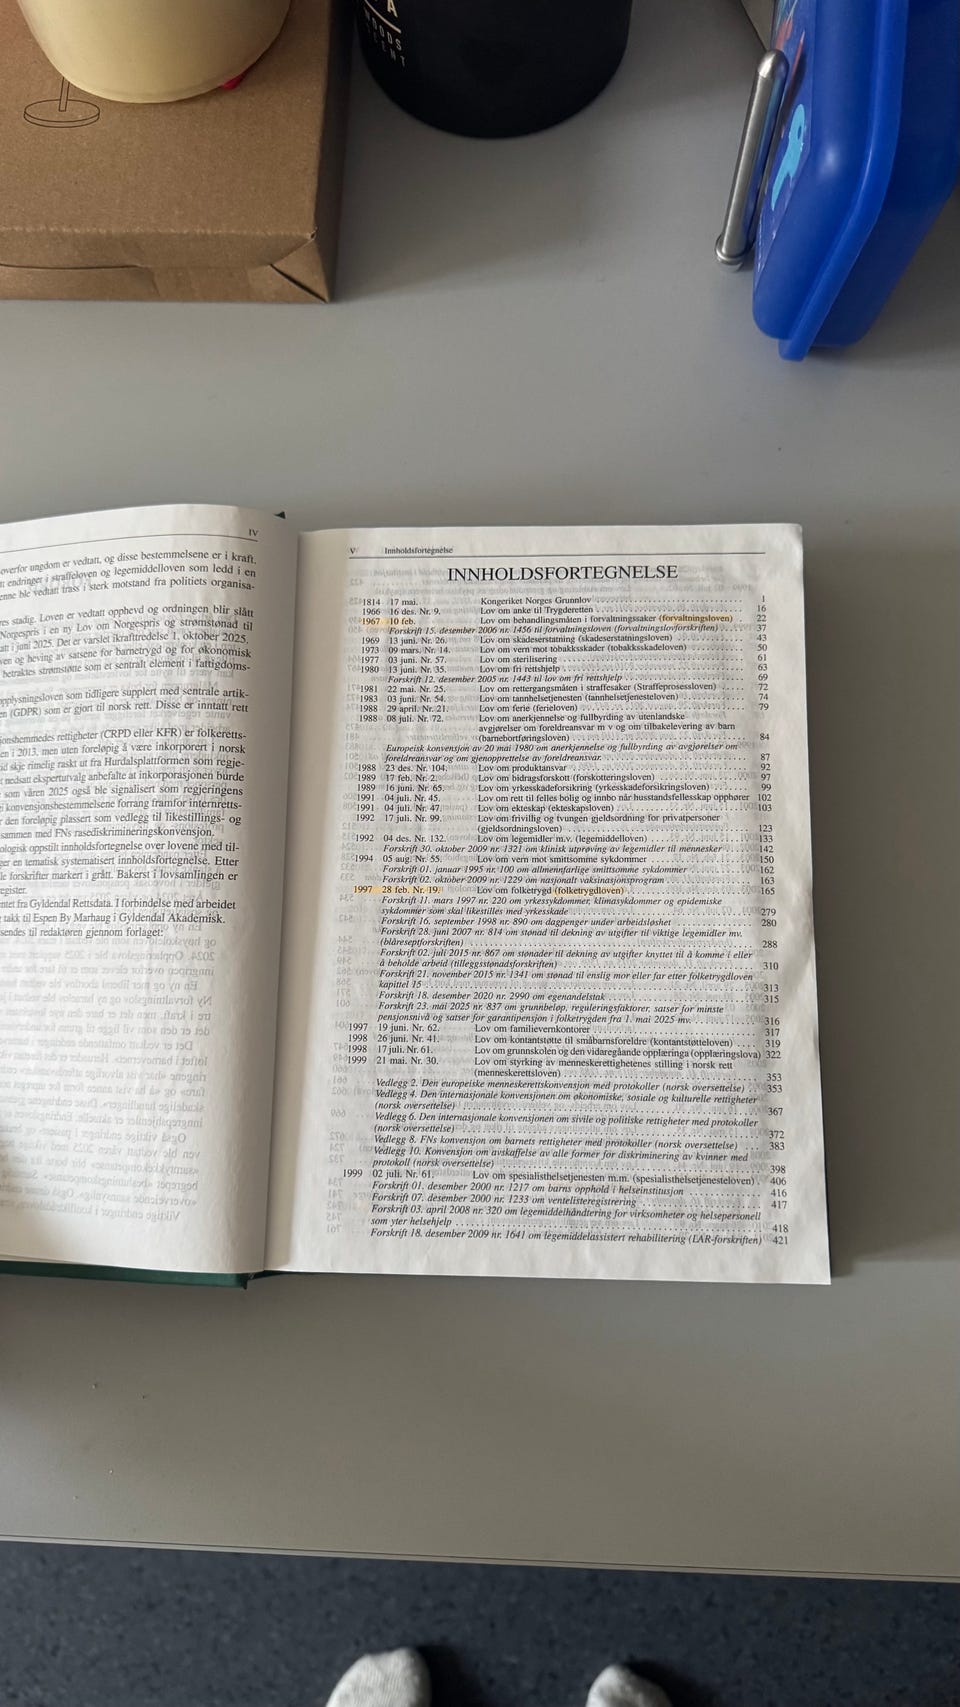 A
WOODS
IV
overfor ungdom er vedtatt, og disse bestemmelsene er i kraft.
endringer i straffeloven og legemiddelloven som ledd i en
enne ble vedtatt trass i sterk motstand fra politiets organisa-
res stadig. Loven er vedtatt opphevd og ordningen blir slått
Norgespris i en ny Lov om Norgespris og strømstønad til
att i juni 2025. Det er varslet ikrafttredelse 1. oktober 2025.
ven og heving av satsene for barnetrygd og for økonomisk
betraktes strømstøtte som et sentralt element i fattigdoms-
opplysningsloven som tidligere supplert med sentrale artik-
en (GDPR) som er gjort til norsk rett. Disse er inntatt rett
jonshemmedes rettigheter (CRPD eller KFR) er folkeretts-
en i 2013, men uten foreløpig å være inkorporert i norsk
id skje rimelig raskt ut fra Hurdalsplattformen som regje-
t nedsatt ekspertutvalg anbefalte at inkorporasjonen burde
som våren 2025 også ble signalisert som regjeringens
i konvensjonsbestemmelsene forrang framfor internretts-
r den foreløpig plassert som vedlegg til likestillings- og
sammen med FNs rasediskrimineringskonvensjon.
ologisk oppstilt innholdsfortegnelse over lovene med til-
ger en tematisk systematisert innholdsfortegnelse. Etter
le forskrifter markert i grått. Bakerst i lovsamlingen er
egister.
ntet fra Gyldendal Rettsdata. I forbindelse med arbeidet
takk til Espen By Marhaug i Gyldendal Akademisk.
sendes til redaktøren gjennom forlaget:
V Innholdsfortegnelse
INNHOLDSFORTEGNELSE
1814 17 mai. Kongeriket Norges Grunnlov 1
1966 16 des. Nr. 9. Lov om anke til Trygderetten 16
1967 10 feb. Lov om behandlingsmåten i forvaltningssaker (forvaltningsloven) 22
Forskrift 15. desember 2006 nr. 1456 til forvaltningsloven (forvaltningslovforskriften) 37
1969 13 juni. Nr. 26. Lov om skadeserstatning (skadeserstatningsloven) 43
1973 09 mars. Nr. 14. Lov om vern mot tobakksskader (tobakksskadeloven) 50
1977 03 juni. Nr. 57. Lov om sterilisering 61
1980 13 juni. Nr. 35. Lov om fri rettshjelp 63
Forskrift 12. desember 2005 nr. 1443 til lov om fri rettshjelp 69
1981 22 mai. Nr. 25. Lov om rettergangsmåten i straffesaker (Straffeprosessloven) 72
1983 03 juni. Nr. 54. Lov om tannhelsetjenesten (tannhelsetjenesteloven) 74
1988 29 april. Nr. 21. Lov om ferie (ferieloven) 79
1988 08 juli. Nr. 72. Lov om anerkjennelse og fullbyrding av utenlandske
avgjørelser om foreldreansvar m v og om tilbakelevering av barn
(barnebortføringsloven) 84
Europeisk konvensjon av 20 mai 1980 om anerkjennelse og fullbyrding av avgjørelser om
foreldreansvar og om gjenopprettelse av foreldreansvar. 87
1988 23 des. Nr. 104. Lov om produktansvar 92
1989 17 feb. Nr. 2. Lov om bidragsforskott (forskotteringsloven) 97
1989 16 juni. Nr. 65. Lov om yrkesskadeforsikring (yrkesskadeforsikringsloven) 99
1991 04 juli. Nr. 45. Lov om rett til felles bolig og innbo når husstandsfellesskap opphører 102
1991 04 juli. Nr. 47. Lov om ekteskap (ekteskapsloven) 103
1992 17 juli. Nr. 99. Lov om frivillig og tvungen gjeldsordning for privatpersoner
(gjeldsordningsloven) 123
1992 04 des. Nr. 132. Lov om legemidler m.v. (legemiddelloven) 133
Forskrift 30. oktober 2009 nr. 1321 om klinisk utprøving av legemidler til mennesker 142
1994 05 aug. Nr. 55. Lov om vern mot smittsomme sykdommer 150
Forskrift 01. januar 1995 nr. 100 om allmennfarlige smittsomme sykdommer 162
Forskrift 02. oktober 2009 nr. 1229 om nasjonalt vaksinasjonsprogram 163
1997 28 feb. Nr. 19. Lov om folketrygd (folketrygdloven) 165
Forskrift 11. mars 1997 nr. 220 om yrkessykdommer, klimasykdommer og epidemiske
sykdommer som skal likestilles med yrkesskade 279
Forskrift 16. september 1998 nr. 890 om dagpenger under arbeidsløshet 280
Forskrift 28. juni 2007 nr. 814 om stønad til dekning av utgifter til viktige legemidler mv.
(blåreseptforskriften) 288
Forskrift 02. juli 2015 nr. 867 om stønader til dekning av utgifter knyttet til å komme i eller
å beholde arbeid (tilleggsstønadsforskriften) 310
Forskrift 21. november 2015 nr. 1341 om stønad til enslig mor eller far etter folketrygdloven
kapittel 15 313
Forskrift 18. desember 2020 nr. 2990 om egenandelstak 315
Forskrift 23. mai 2025 nr. 837 om grunnbeløp, reguleringsfaktorer, satser for minste
pensjonsnivå og satser for garantipensjon i folketrygden fra 1. mai 2025 mv. 316
1997 19 juni. Nr. 62. Lov om familievernkontorer 317
1998 26 juni. Nr. 41. Lov om kontantstøtte til småbarnsforeldre (kontantstøtteloven) 319
1998 17 juli. Nr. 61. Lov om grunnskolen og den vidaregåande opplæringa (opplæringslova) 322
1999 21 mai. Nr. 30. Lov om styrking av menneskerettighetenes stilling i norsk rett
(menneskerettsloven) 353
Vedlegg 2. Den europeiske menneskerettskonvensjon med protokoller (norsk oversettelse) 353
Vedlegg 4. Den internasjonale konvensjonen om økonomiske, sosiale og kulturelle rettigheter
(norsk oversettelse) 367
Vedlegg 6. Den internasjonale konvensjonen om sivile og politiske rettigheter med protokoller
(norsk oversettelse) 372
Vedlegg 8. FNs konvensjon om barnets rettigheter med protokoller (norsk oversettelse) 383
Vedlegg 10. Konvensjon om avskaffelse av alle former for diskriminering av kvinner med
protokoll (norsk oversettelse) 398
1999 02 juli. Nr. 61. Lov om spesialisthelsetjenesten m.m. (spesialisthelsetjenesteloven) 406
Forskrift 01. desember 2000 nr. 1217 om barns opphold i helseinstitusjon 416
Forskrift 07. desember 2000 nr. 1233 om ventelisteregistrering 417
Forskrift 03. april 2008 nr. 320 om legemiddelhåndtering for virksomheter og helsepersonell
som yter helsehjelp 418
Forskrift 18. desember 2009 nr. 1641 om legemiddelassistert rehabilitering (LAR-forskriften) 421